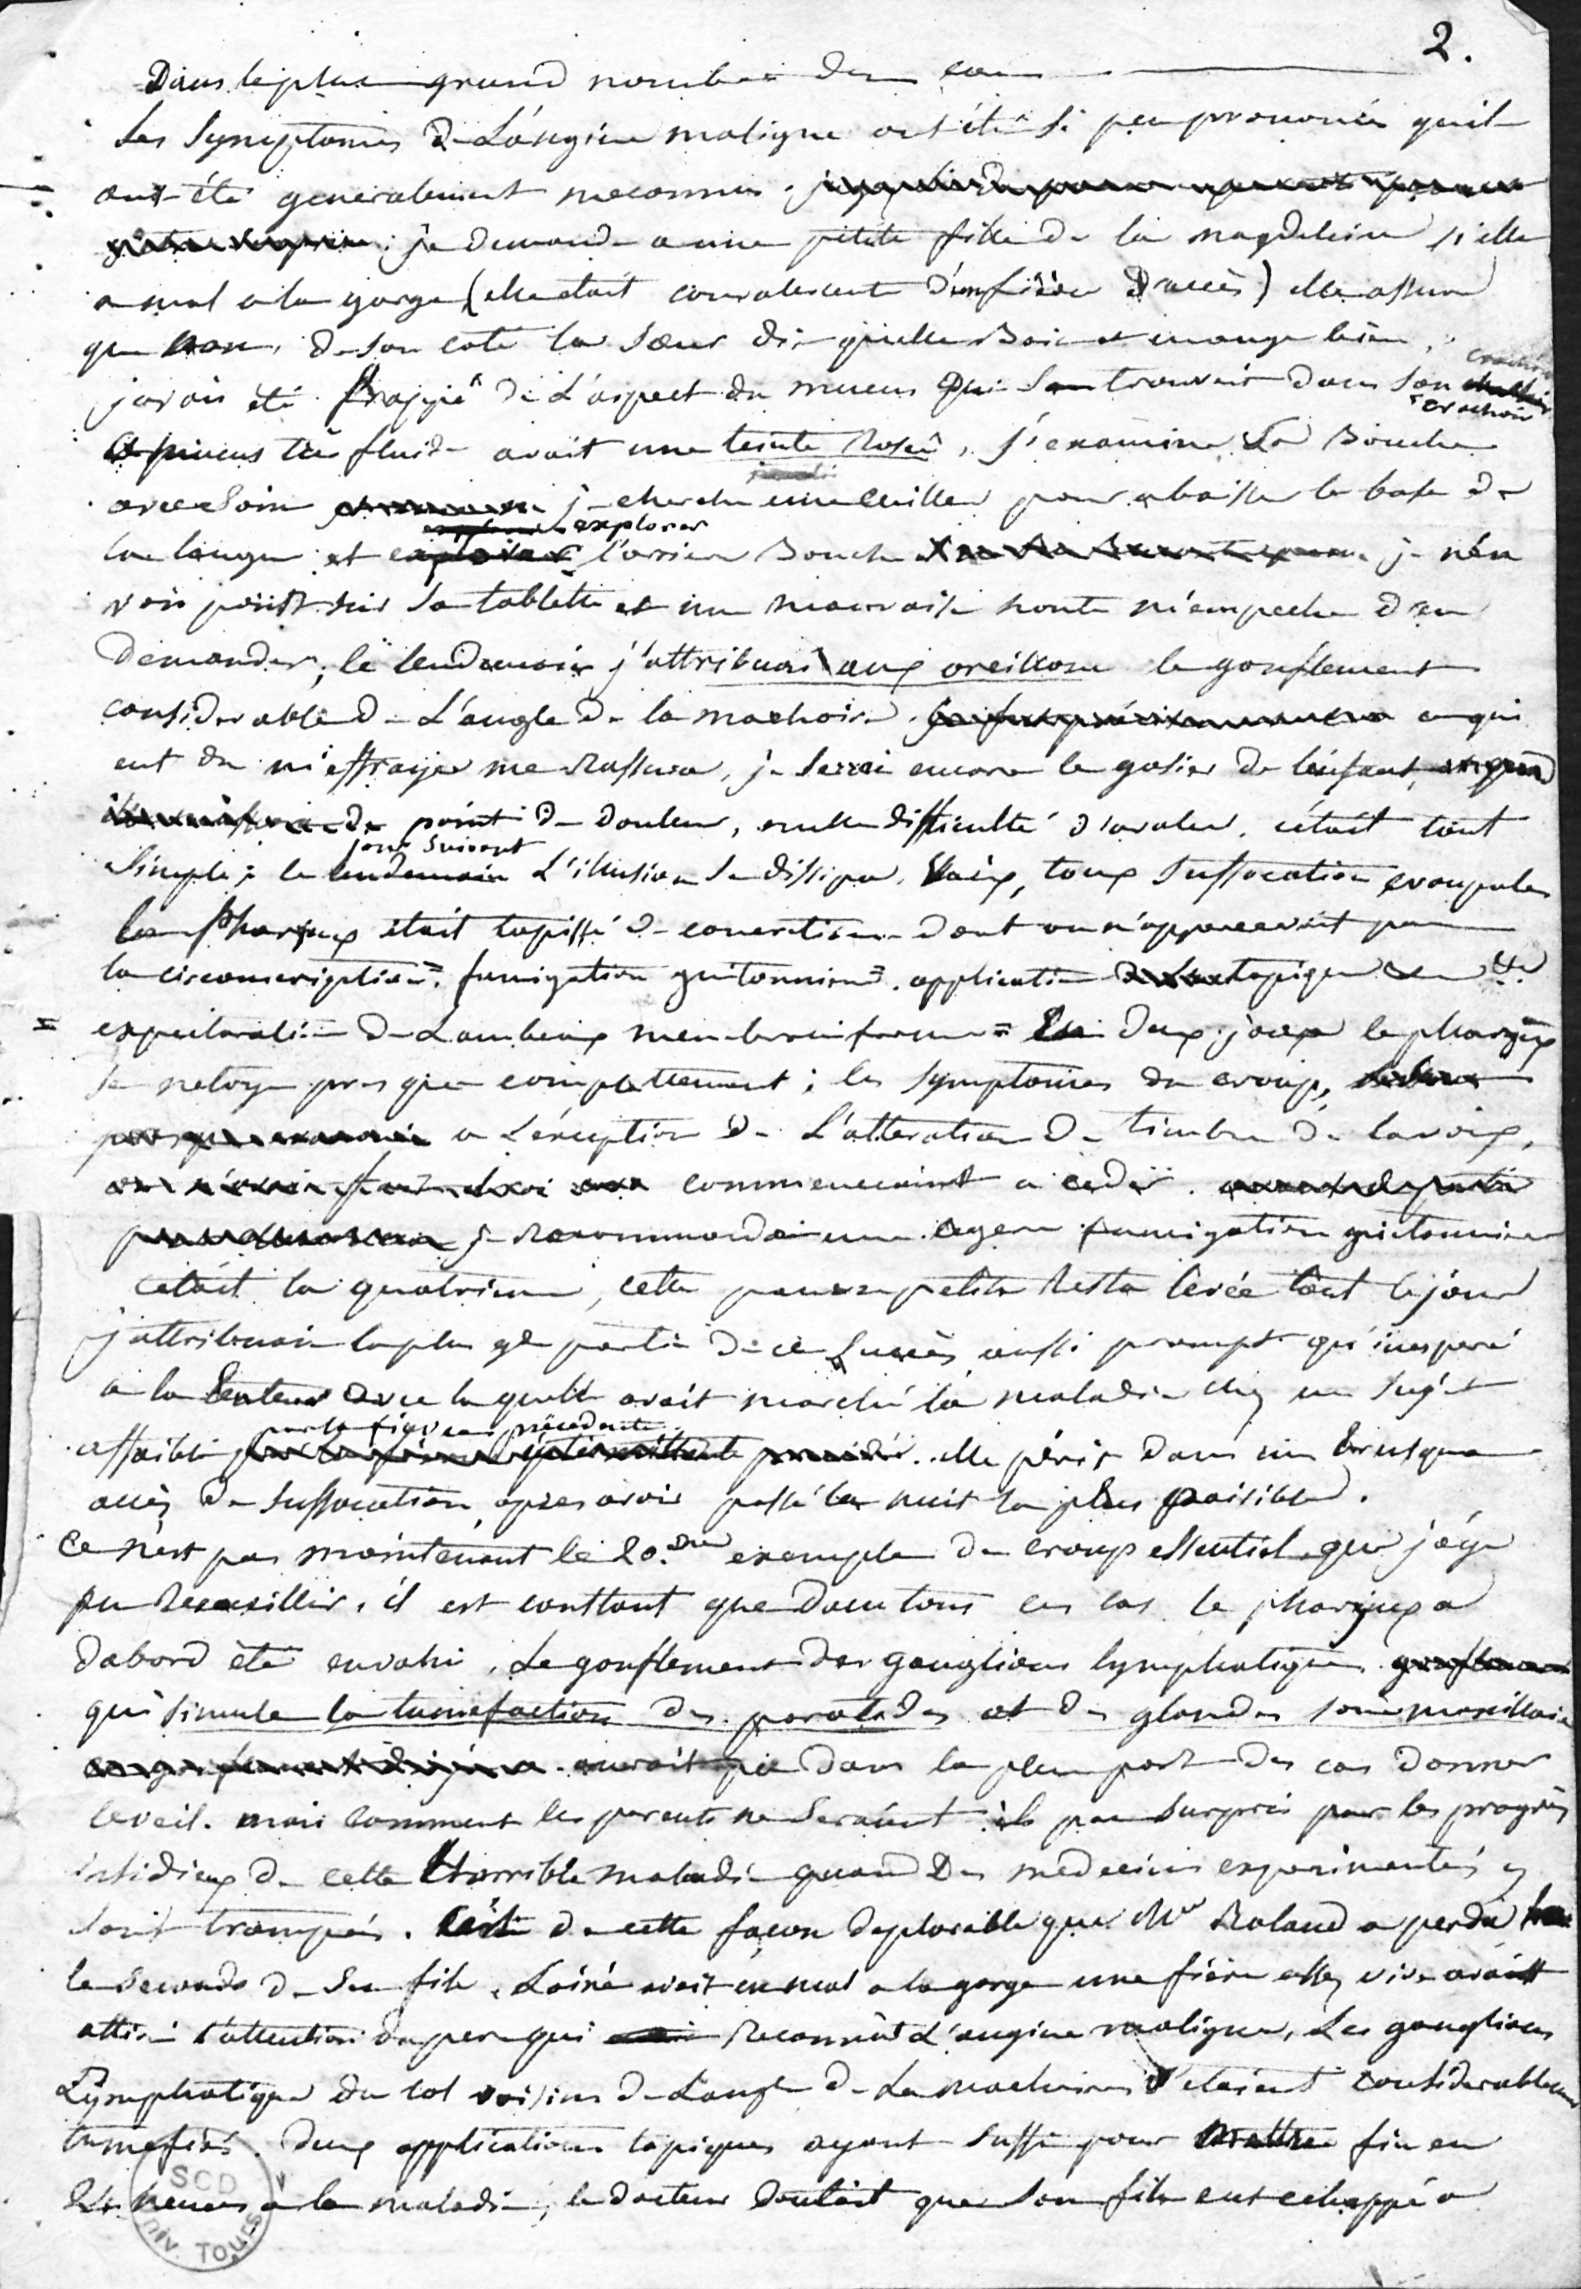 2.
Dans le plus grand nombre des cas
Les symptomes de L'angine maligne ont été si peu prononcés qu'ils
ont été generalement meconnus.
je demande a une petite fille de la magdeleine si elle
a mal a la gorge (elle etait convalescente d'une fièvre d'accès) elle assure
que non, de son coté la sœur dit qu'elle boit et mange bien,
j'avais été frappé de L'aspect du mucus qui se trouvait dans son crachoir
ce mucus très fluide avait une teinte Rosée, j'examine La Bouche
avec soin je cherche une cuiller pour abaisser la base de
la langue et explorer l'arriere Bouche je n'en
vois point sur sa tablette et une mauvaise honte m'empeche d'en
demander; le lendemain j'attribuai aux oreillons le gonflement
considerable de L'angle de la machoire. ce qui
eut du m'effrayer me Rassura, je serrai encore le gosier de l'enfant,
point de douleur, nulle difficulté d'avaler, c'était tout
simple; le jour suivant L'illusion se dissipa. Voix, toux suffocation croupales
le Pharynx était tapissé de concretions dont on n'appercevait pas
la circonscription = fumigation guitonnienne = application topique &c
expectoration de Lambeaux membraniformes = En deux jours le pharynx
se netoye presque complettement; les symptomes du croup,
a L'exception de L'alteration de timbre de la voix,
commencaient a ceder.
je Recommandai une legere fumigation guitonnienne
c'était la quatrieme, cette pauvre petite Resta levée tout le jour
j'attribuai la plus gde partie de ce succès aussi prompt qu'inesperé
a la lenteur avec laquelle avait marché la maladie chez un sujet
affaibli par la fièvre précédente. elle périt dans un brusque
accès de suffocation, apres avoir passé la nuit la plus paisible.
Ce n'est pas maintenant le 20.me exemple de croup essentiel que j'aye
pu Recueillir, il est constant que dans tous ces cas le pharynx a
dabord été envahi. Le gonflement des ganglions lymphatiques
qui simule la tumefaction des parotides et des glandes sous maxillaires
aurait pu dans la plus part des cas donner
l'eveil. mais comment les parents ne seraient ils pas surpris par les progrès
insidieux de cette Horrible maladie quand Des medecins experimentés y
sont trompés. C'est de cette façon deplorable que Mr Roland a perdu
le second de ses fils. L'ainé avait eu mal a la gorge une fièvre assez vive avait
attiré l'attention du pere qui Reconnut L'angine maligne, Les ganglions
Lymphatiques du col voisins de L'angle de La machoire s'etaient considerablement
tumefiés. deux applications topiques ayant suffi pour mettre fin en
24 heures a la maladie, le docteur doutait que son fils eut echappé a
SCD
Univ. TOURS